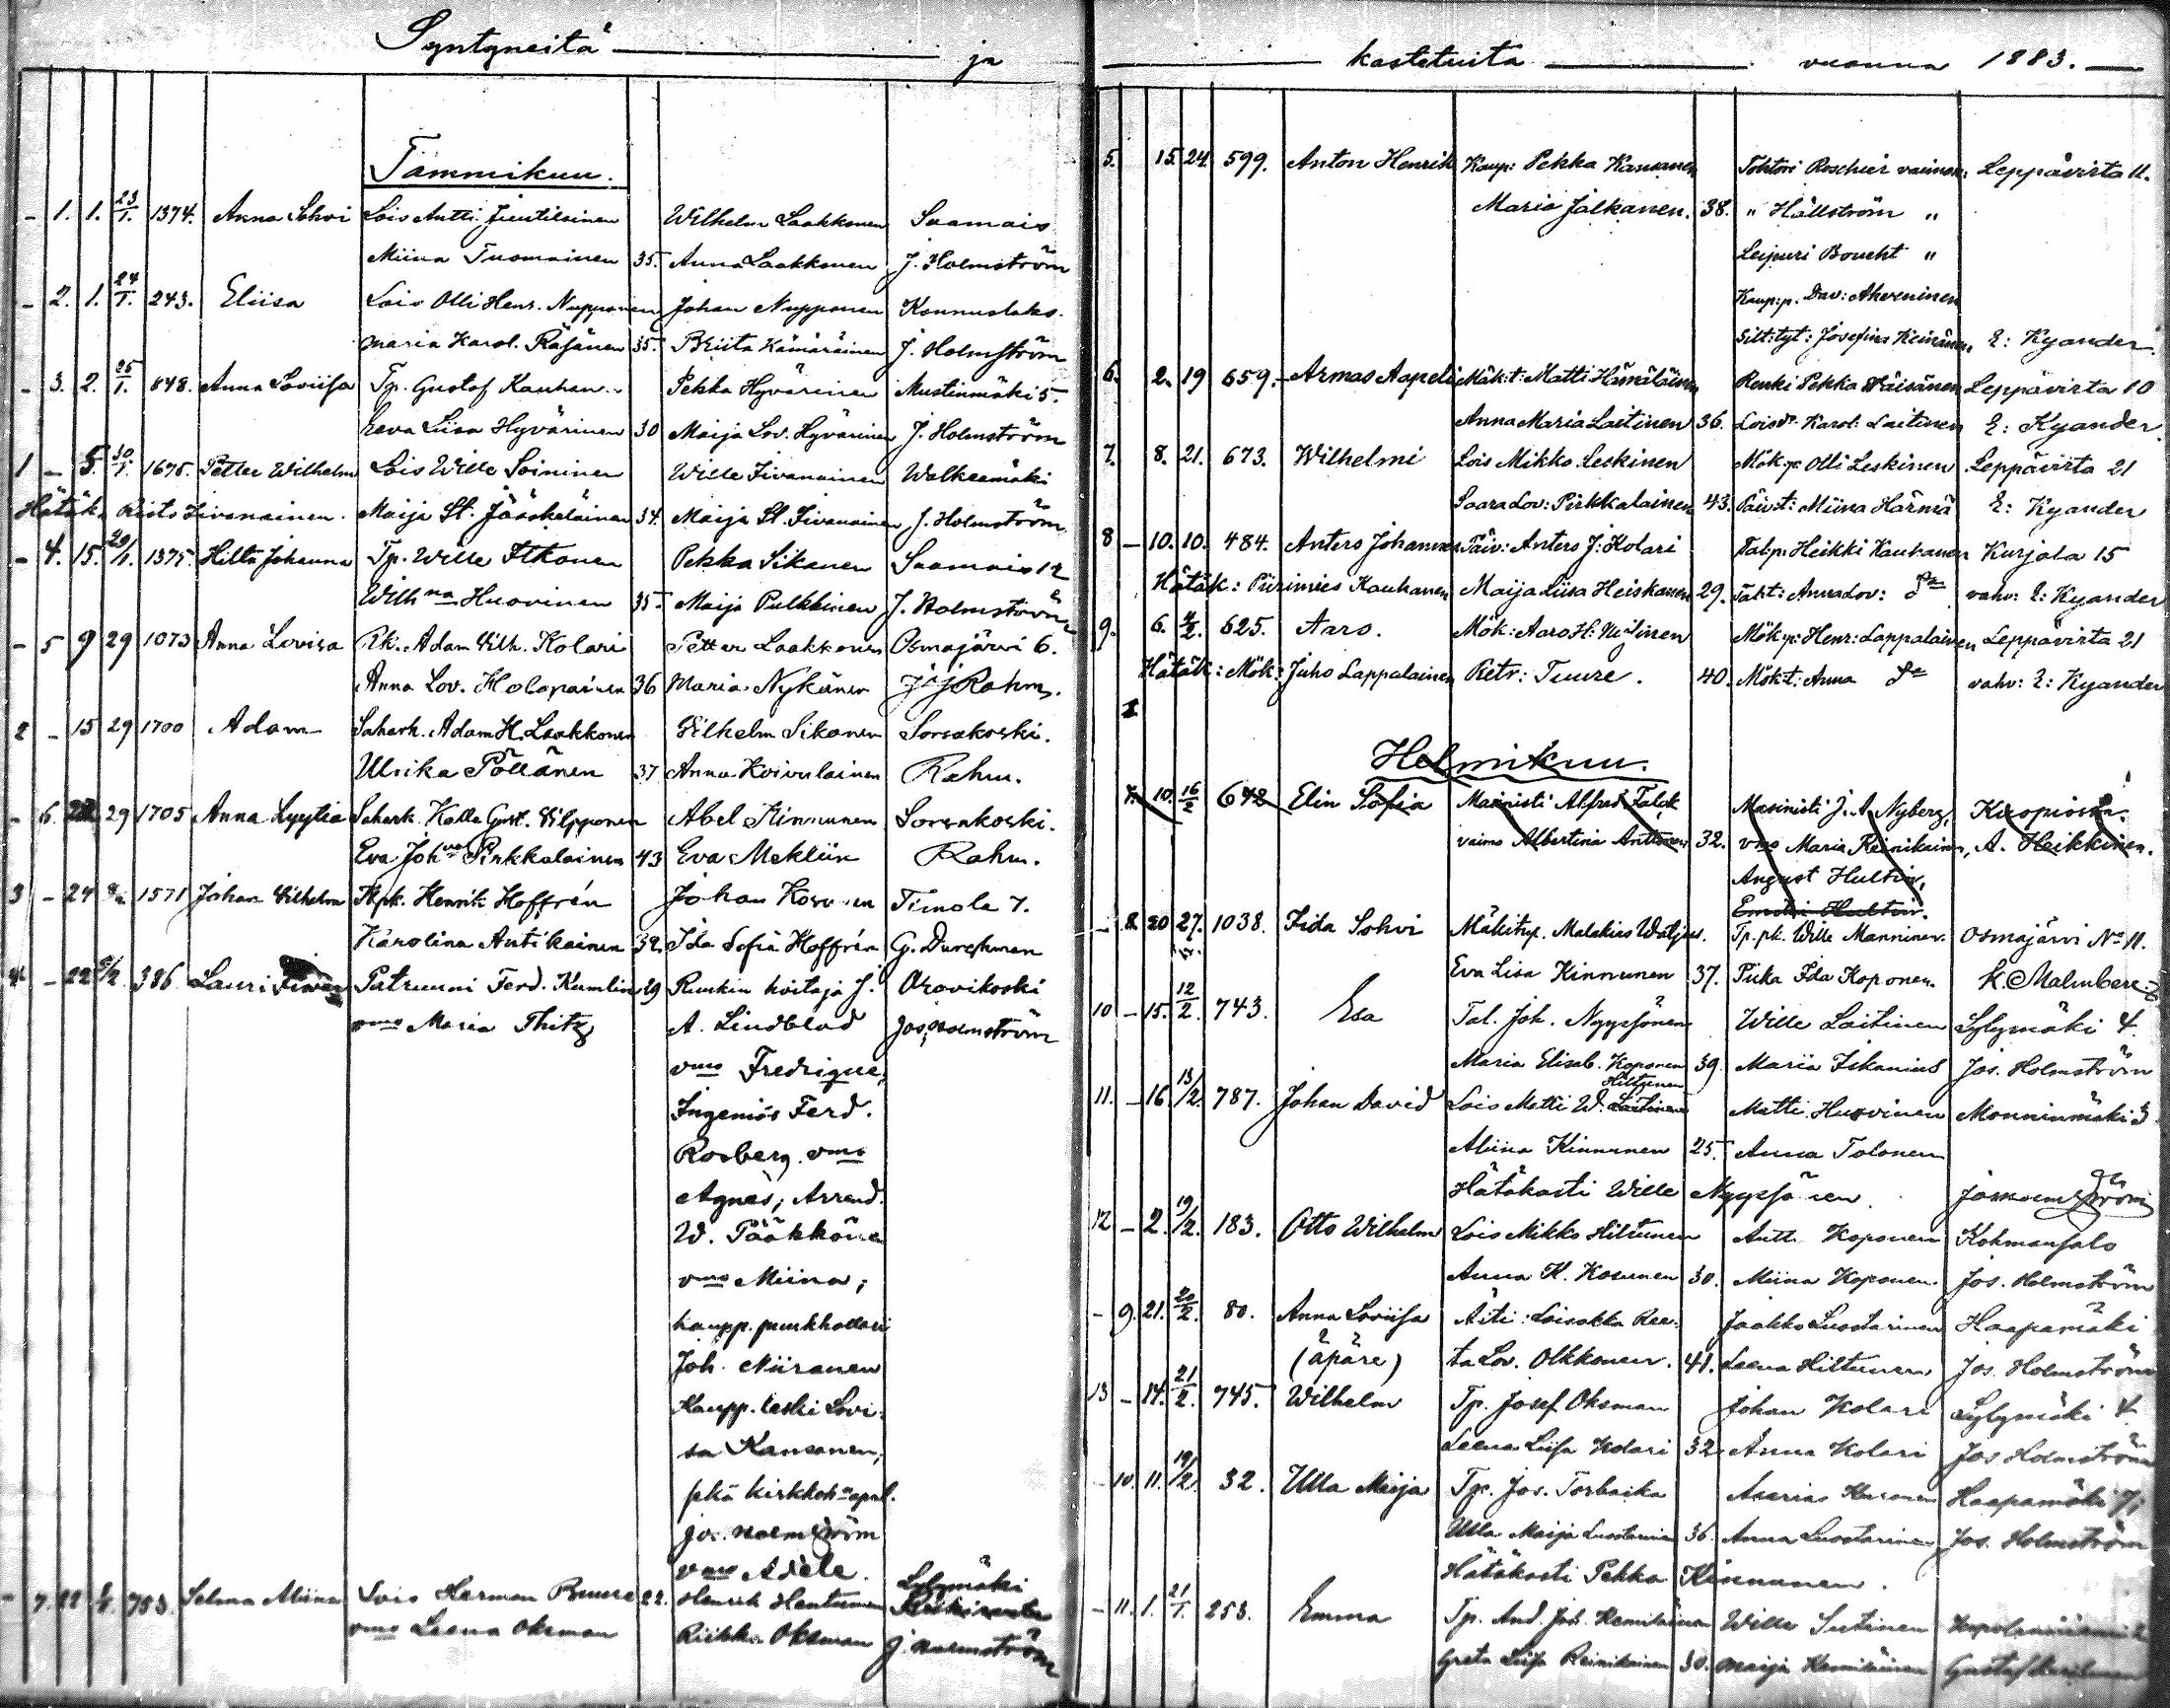 Syntyneitä ja
Tammikuu.
- 1. 1. 23/1. 1374. Anna Sohvi Lois Antti Juutilainen Wilhelm Laakkonen Saamais
Miina Tuomainen 35. Anna Laakkonen J. Holmström
- 2. 1. 24/1. 243. Eliisa Lois Olli Henr. Nupponen Johan Nupponen Konnuslaks.
Maria Karol. Räsänen 35. Briita Kämäräinen J. Holmström
- 3. 2. 25/1. 848. Anna Loviisa Tp. Gustof Kauhan.. Pekka Hyvärinen Mustinmäki 5.
Eeva Liisa Hyvärinen 30 Maija Lov. Hyvärinen J. Holmström
1 - 5. 30/1. 1675. Petter Wilhelm Lois Wille Soininen Wille Iivanainen Walkeamäki
Hätäk. Risto Iivanainen. Maija St. Jääskeläinen 34. Maija St. Iivanainen J. Holmström
- 4. 15. 20/1. 1375. Hilta Johanna Tp. Wille Itkonen Pekka Sikanen Saamais 12
Wilhna Huovinen 35. Maija Pulkkinen J. Holmström
- 5 9 29 1073 Anna Lovisa Rk. Adam Wilh. Kolari Petter Laakkonen Osmajärvi 6.
Anna Lov. Holopainen 36 Maria Nykänen J J Rahm.
2 - 15 29 1700 Adam Saherk. Adam H. Laakkonen Wilhelm Sikanen Sorsakoski.
Ulrika Pöllänen 37 Anna Koivulainen Rahm.
- 6. 22 29 1705 Anna Lyytia Saherk. Kalle Gust. Wilpponen Abel Kinnunen Sorsakoski.
Eva Johna Pirkkalainen 43 Eva Meklin Rahm.
3 - 24 1571 Johan Wilhelm Tkpk. Henrik Hoffrén Johan Kosunen Timola 7.
Karolina Antikainen 32. Ida Sofia Hoffrén G. Durchman
4. - 22 386 Lauri Patruuni Ferd. Kumlin 29 Ruukin hoitaja J. Oravikoski
vmo Maria Thitz A. Lindblad Jos. Holmström
vmo Fredrique,
Ingeniös Ferd.
Rosberg. vmo
Agnes; Arrend.
W. Pääkköne
vmo Miina;
kaupp. puukhollari
Joh. Niiranen
Kaupp. leski Lovi-
sa Kansanen;
sekä kirkkoh. apul.
Jos. Holmström
vmo Adéle.
- 7. 22 753. Selma Miina Lois Herman Ruure 22. Henrik Hentunen Lylymäki
vmo Leena Oksman Riikka Oksman J. Holmström
kastetuita vuonna 1883.
5. 15. 24. 599. Anton Henrik Kaup: Pekka Kansanen Tohtori Roschier vaimon: Leppävirta 11.
Maria Jalkanen. 38. " Hällström "
Leipuri Boucht "
Kaup:p. Dav: Ahveninen
Josefina Keinänen E: Kyander.
6. 2. 19 659. Armas Aapeli Mäk:t: Matti Hämäläinen Renki Pekka Väisänen Leppävirta 10
Anna Maria Laitinen 36. Loisv: Karol: Laitinen E: Kyander.
7. 8. 21. 673. Wilhelmi Lois Mikko Leskinen Mök:p: Olli Leskinen Leppävirta 21
Saara Lov: Pirkkalainen 43. Päiv:t: Miina Härmä E: Kyander
8 - 10. 10. 484. Anters Johannes Päiv: Anters J: Kolari Tal:p: Heikki Kauhanen Kurjala 15
Hätäk: Piirimies Kauhanen Maija Liisa Heiskanen 29. Tal:t: Anna Lov: do vahv: E: Kyander
9. 6. 4/2. 625. Aaro. Mök: Aaro H: Mustinen Mök:p: Henr: Lappalainen Leppävirta 21
Hätäk: Mök: Juho Lappalainen Retr: Tuure. 40. Mök:t: Anna do vahv: E: Kyander
Helmikuu.
7. 10. 16/2 642 Elin Sofia Masinisti Alfred Falck Masinisti J. A. Nyberg, Kuopiosta.
vaimo Albertina Anttonen 32. vmo Maria Reinikainen, A. Heikkinen.
August Hultin,
Emilia Hultin.
- 8. 20 27. 1038. Iida Sohvi Mäkitup. Malakias Waljus. Tp.pk. Wille Manninen Osmajärvi No 11.
Eva Lisa Kinnunen 37. Piika Ida Koponen. K. Malmberg
10 - 15. 12/2. 743. Esa Tal. Joh. Nyyssönen Wille Laitinen Lylymäki 4.
Maria Elisab. Koponen 39. Maria Iskanius Jos. Holmström
Hiltunen
11. - 16 13/2. 787. Johan David Lois Matti W. Laitinen Matti Huovinen Monninmäki 3.
Aliina Kinnunen 25. Anna Tolonen
Hätäkasti Wille Nyyssönen. Jos. Holmström
12 - 2. 19/2. 183. Otto Wilhelm Lois Mikko Hiltunen Antti Koponen Kohmansalo
Anna K. Kosunen 30. Miina Koponen. Jos. Holmström
- 9. 21. 20/2. 80. Anna Loviisa Äiti: Loisakka Ree- Jaakko Luostarinen Haapamäki
(äpäre) ta Lov. Olkkonen. 41. Leena Hiltunen Jos. Holmström
13 - 14. 21/2. 745. Wilhelm Tp. Josef Oksman Johan Kolari Lylymäki 4.
Leena Liisa Kolari 32. Anna Kolari Jos Holmström
- 10. 11. 19/2. 32. Ulla Maija Tp. Jos. Torbaska Asarias Kosonen Haapamäki 7;
Ulla Maija Luostarinen 36. Anna Luostarinen Jos. Holmström
Hätäkasti Pekka Kinnunen.
- 11. 1. 21/1. 253. Emma Tp. And. Joh. Remikäinen Wille Sutinen
Greta Liisa Reinikainen 30. Maija